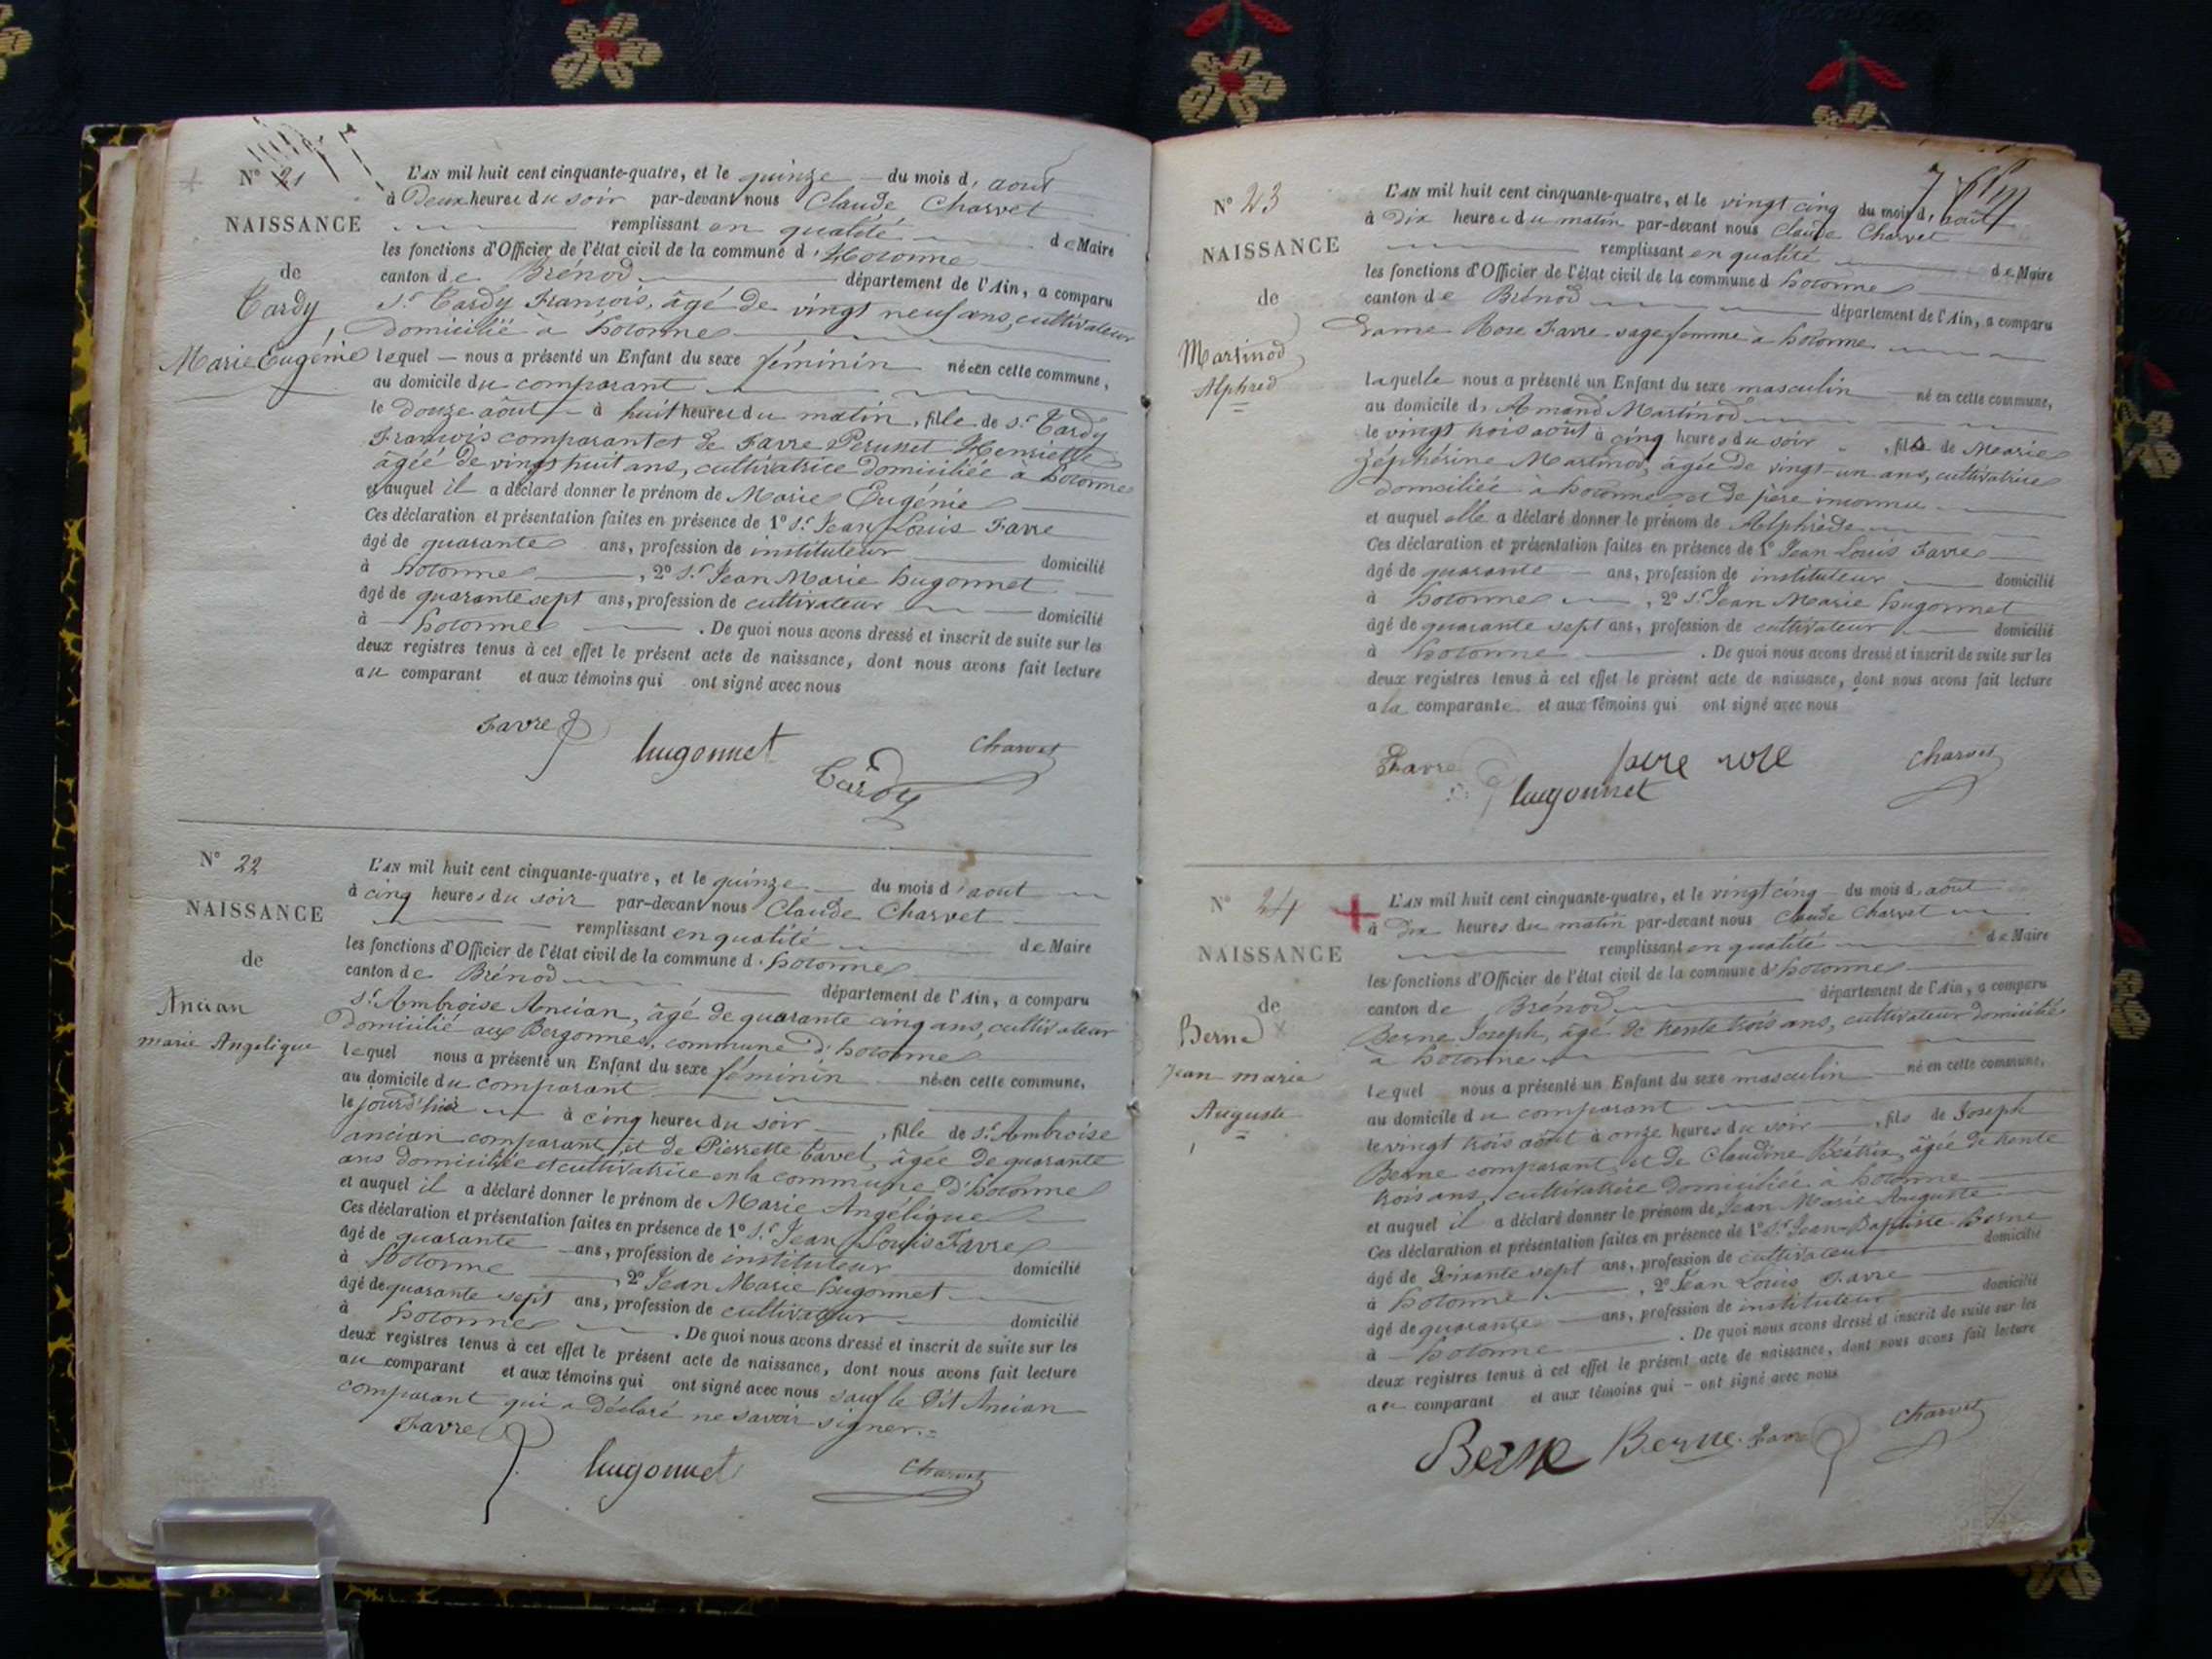 N° 21
NAISSANCE
de
Tardy
Marie Eugénie
L'AN mil huit cent cinquante-quatre, et le quinze du mois d'août
à Deux heures du soir par-devant nous Claude Charvet
remplissant en qualité de Maire
les fonctions d'Officier de l'état civil de la commune d'Hotonne
canton de Brénod département de l'Ain, a comparu
Sr Tardy François, âgé de vingt neuf ans, cultivateur
domicilié à hotonne
lequel nous a présenté un Enfant du sexe féminin née en cette commune,
au domicile du comparant
le douze août à huit heures du matin, fille de Sr Tardy
François comparant et de Favre Perunet Henriette
âgée de vingt huit ans, cultivatrice domiciliée à hotonne
et auquel il a déclaré donner le prénom de Marie Eugénie
Ces déclaration et présentation faites en présence de 1° Sr Jean Louis Favre
âgé de quarante ans, profession de instituteur domicilié
à hotonne, 2° Sr Jean Marie hugonnet
âgé de quarante sept ans, profession de cultivateur domicilié
à hotonne. De quoi nous avons dressé et inscrit de suite sur les
deux registres tenus à cet effet le présent acte de naissance, dont nous avons fait lecture
au comparant et aux témoins qui ont signé avec nous
Favre hugonnet Tardy Charvet
N° 22
NAISSANCE
de
Ancian
marie Angelique
L'AN mil huit cent cinquante-quatre, et le quinze du mois d'aout
à cinq heures du soir par-devant nous Claude Charvet
remplissant en qualité de Maire
les fonctions d'Officier de l'état civil de la commune d'hotonne
canton de Brénod département de l'Ain, a comparu
Sr Ambroise Ancian, âgé de quarante cinq ans, cultivateur
domicilié aux Bergonnes, commune d'hotonne
lequel nous a présenté un Enfant du sexe féminin née en cette commune,
au domicile du comparant
le jourd'hui à cinq heures du soir, fille de Sr Ambroise
ancian comparant, et de Pierrette Cavet, âgée de quarante
ans domiciliée et cultivatrice en la commune d'hotonne
et auquel il a déclaré donner le prénom de Marie Angélique
Ces déclaration et présentation faites en présence de 1° Sr Jean Louis Favre
âgé de quarante ans, profession de instituteur domicilié
à hotonne, 2° Jean Marie hugonnet
âgé de quarante sept ans, profession de cultivateur domicilié
à hotonne. De quoi nous avons dressé et inscrit de suite sur les
deux registres tenus à cet effet le présent acte de naissance, dont nous avons fait lecture
au comparant et aux témoins qui ont signé avec nous sauf le dit Ancian
comparant qui a déclaré ne savoir signer.
Favre hugonnet Charvet
7
N° 23
NAISSANCE
de
Martinod
Alphred
L'AN mil huit cent cinquante-quatre, et le vingt cinq du mois d'août
à Dix heures du matin par-devant nous Claude Charvet
remplissant en qualité de Maire
les fonctions d'Officier de l'état civil de la commune d hotonne
canton de Brénod département de l'Ain, a comparu
Dame Rose Favre sage femme à hotonne
laquelle nous a présenté un Enfant du sexe masculin né en cette commune,
au domicile d'Amand Martinod
le vingt trois août à cinq heures du soir, fils de Marie
Zéphérine Martinod, âgée de vingt-un ans, cultivatrice
domiciliée à hotonne et de père inconnu
et auquel elle a déclaré donner le prénom de Alphrède
Ces déclaration et présentation faites en présence de 1° Jean Louis Favre
âgé de quarante ans, profession de instituteur domicilié
à hotonne, 2° Sr Jean Marie hugonnet
âgé de quarante sept ans, profession de cultivateur domicilié
à hotonne. De quoi nous avons dressé et inscrit de suite sur les
deux registres tenus à cet effet le présent acte de naissance, dont nous avons fait lecture
a la comparante et aux témoins qui ont signé avec nous
Favre hugonnet rose Charvet
N° 24
NAISSANCE
de
Berne
Jean marie
Auguste
L'AN mil huit cent cinquante-quatre, et le vingt cinq du mois d'août
à Dix heures du matin par-devant nous Claude Charvet
remplissant en qualité de Maire
les fonctions d'Officier de l'état civil de la commune d'hotonne
canton de Brénod département de l'Ain, a comparu
Berne Joseph, âgé de trente trois ans, cultivateur domicilié
à hotonne
lequel nous a présenté un Enfant du sexe masculin né en cette commune,
au domicile du comparant
le vingt trois août à onze heures du soir, fils de Joseph
Berne comparant, et de Claudine Béatrix, âgée de trente
trois ans, cultivatrice domiciliée à hotonne
et auquel il a déclaré donner le prénom de Jean Marie Auguste
Ces déclaration et présentation faites en présence de 1° Sr Jean-Baptiste Berne
âgé de Soixante sept ans, profession de cultivateur domicilié
à hotonne, 2° Jean Louis Favre
âgé de quarante ans, profession de instituteur domicilié
à hotonne. De quoi nous avons dressé et inscrit de suite sur les
deux registres tenus à cet effet le présent acte de naissance, dont nous avons fait lecture
au comparant et aux témoins qui ont signé avec nous
Berne Berne Favre Charvet